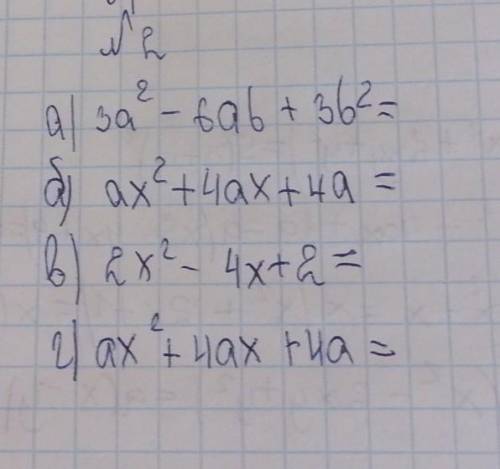 № 2
а) 3a² - 6ab + 3b² =
б) ax² + 4ax + 4a =
в) 2x² - 4x + 2 =
г) ax² + 4ax + 4a =